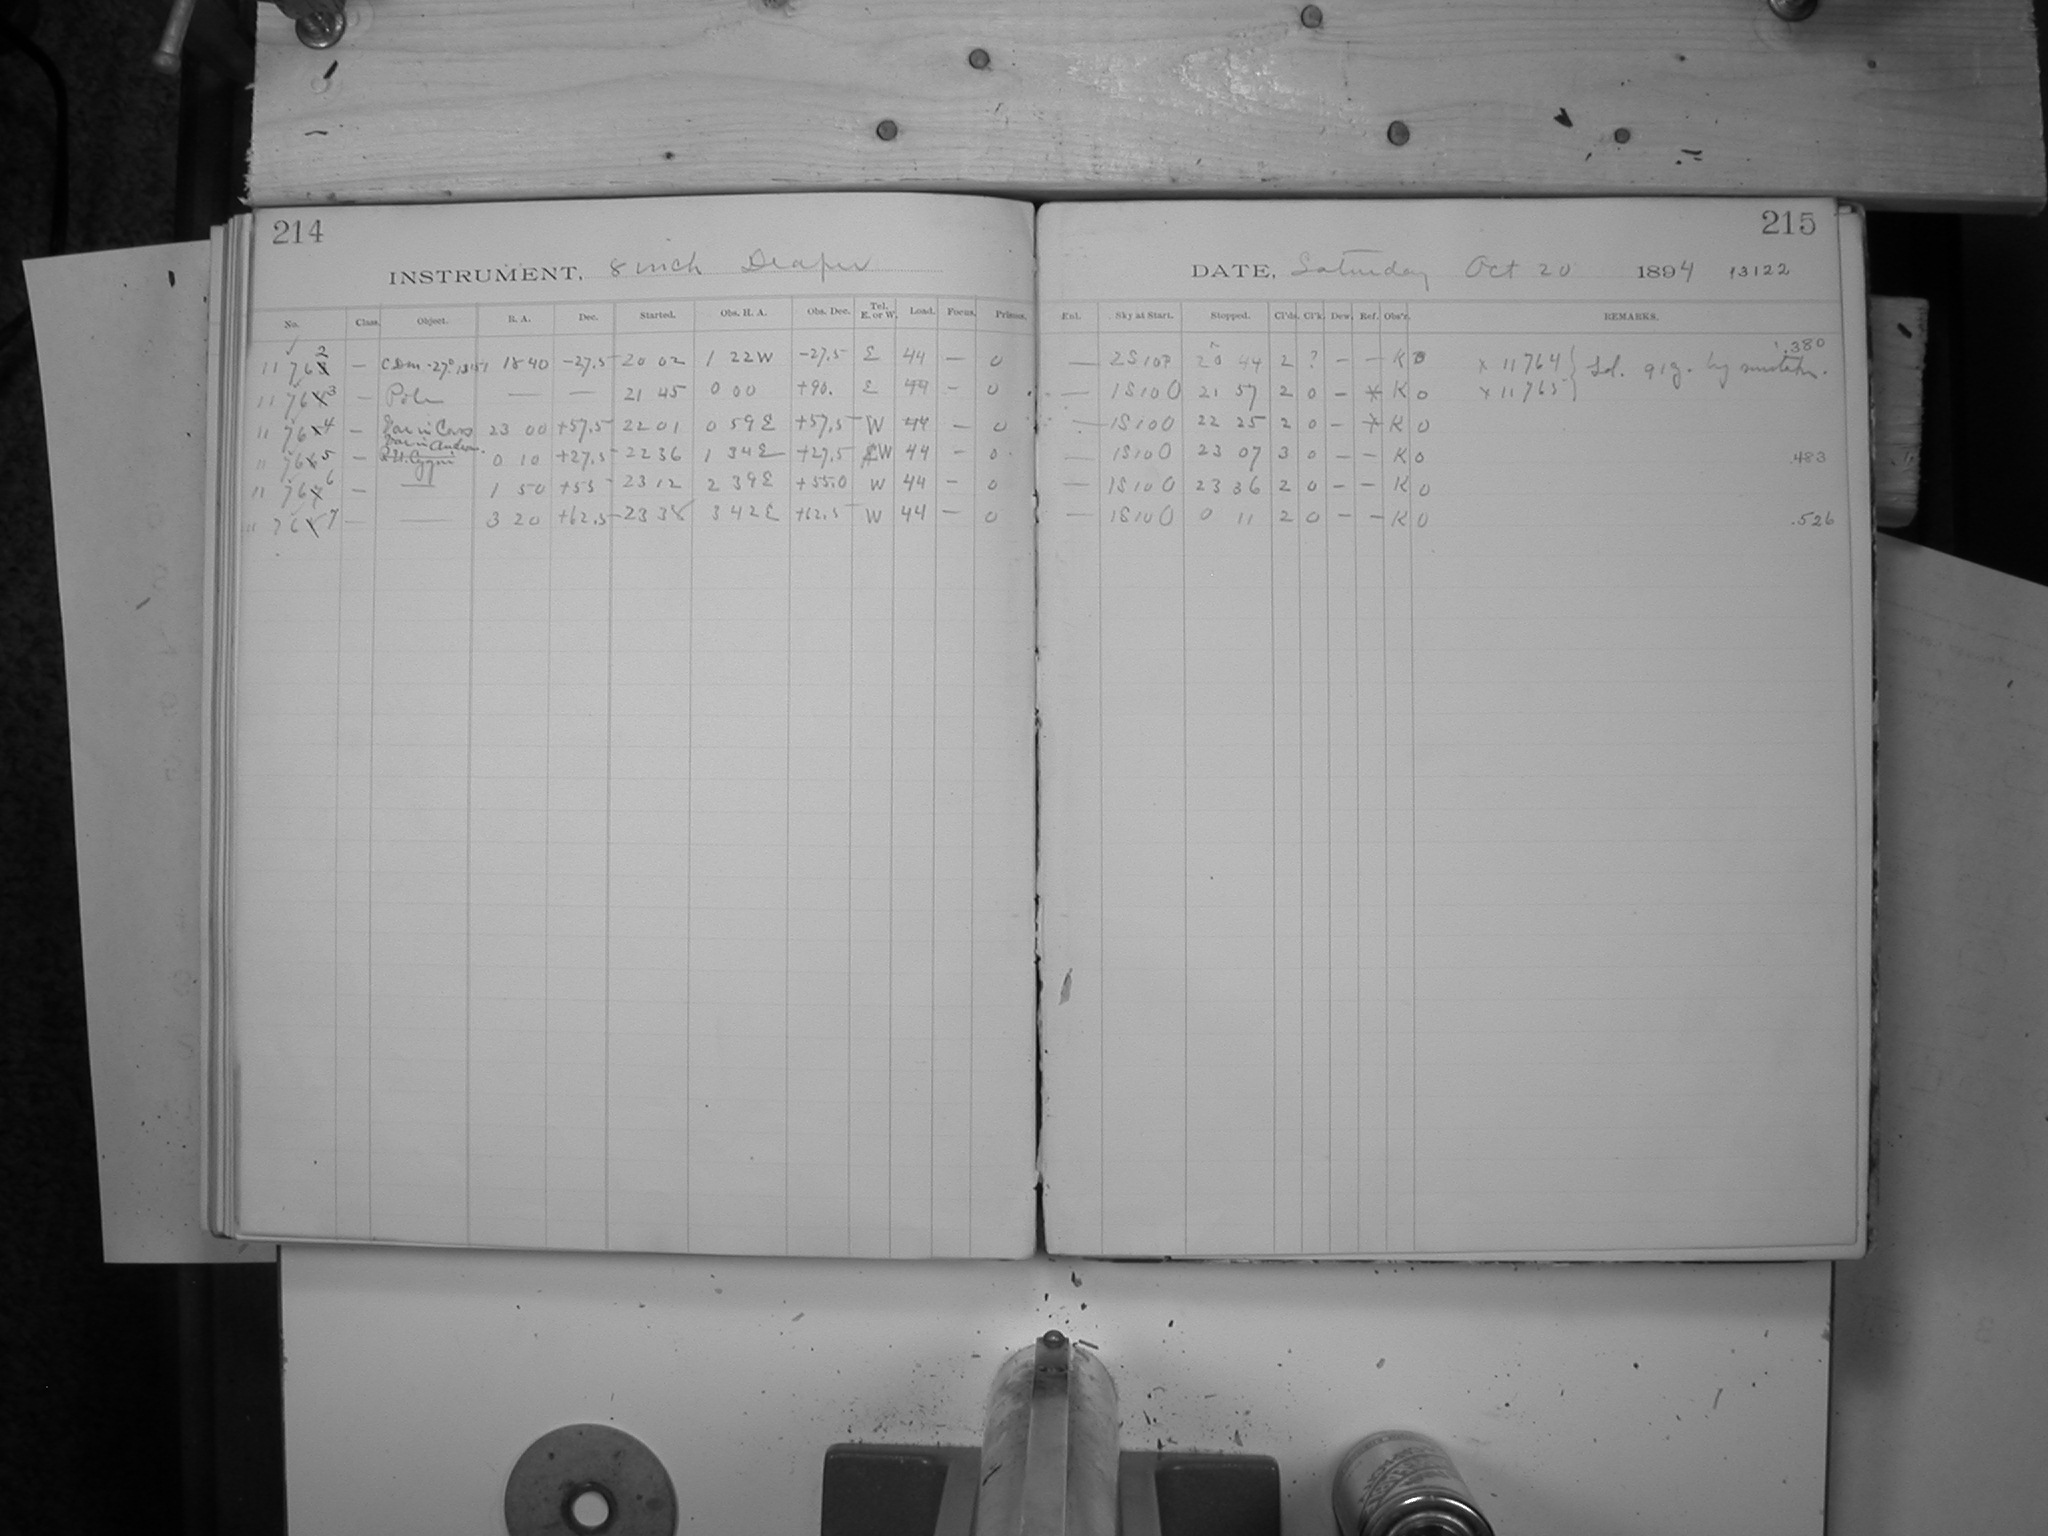 214
INSTRUMENT, 8 inch Draper
No. Class. Object. R. A. Dec. Started. Obs. H. A. Obs. Dec. Tel. E. or W. Load. Focus. Prisms.
11762 — C.Dm -27° 18 40 -27.5 20 02 1 22W -27.5 E 44 — 0
11763 — Pole — — 21 45 0 00 +90. E 44 — 0
11764 — Var in Cass 23 00 +57.5 22 01 0 59E +57.5 W 44 — 0
11765 — Var in Androm. 0 10 +27.5 22 36 1 34E +27.5 W 44 — 0
11766 — — 1 50 +55 23 12 2 39E +55.0 W 44 — 0
11767 — — 3 20 +62.5 23 38 3 42E +62.5 W 44 — 0
215
DATE, Saturday Oct 20 1894 13122
Enl. Sky at Start. Stopped. Cl'ds. Cl'k. Dew. Ref. Obs'r. REMARKS.
— 2S10P 20 44 2 ? — — K 0 x 11764 .380
— 1S100 21 57 2 0 — K 0 x 11765
— 1S100 22 25 2 0 — K 0
— 1S100 23 07 3 0 — — K 0 .483
— 1S100 23 36 2 0 — — K 0
— 1S100 0 11 2 0 — — K 0 .526